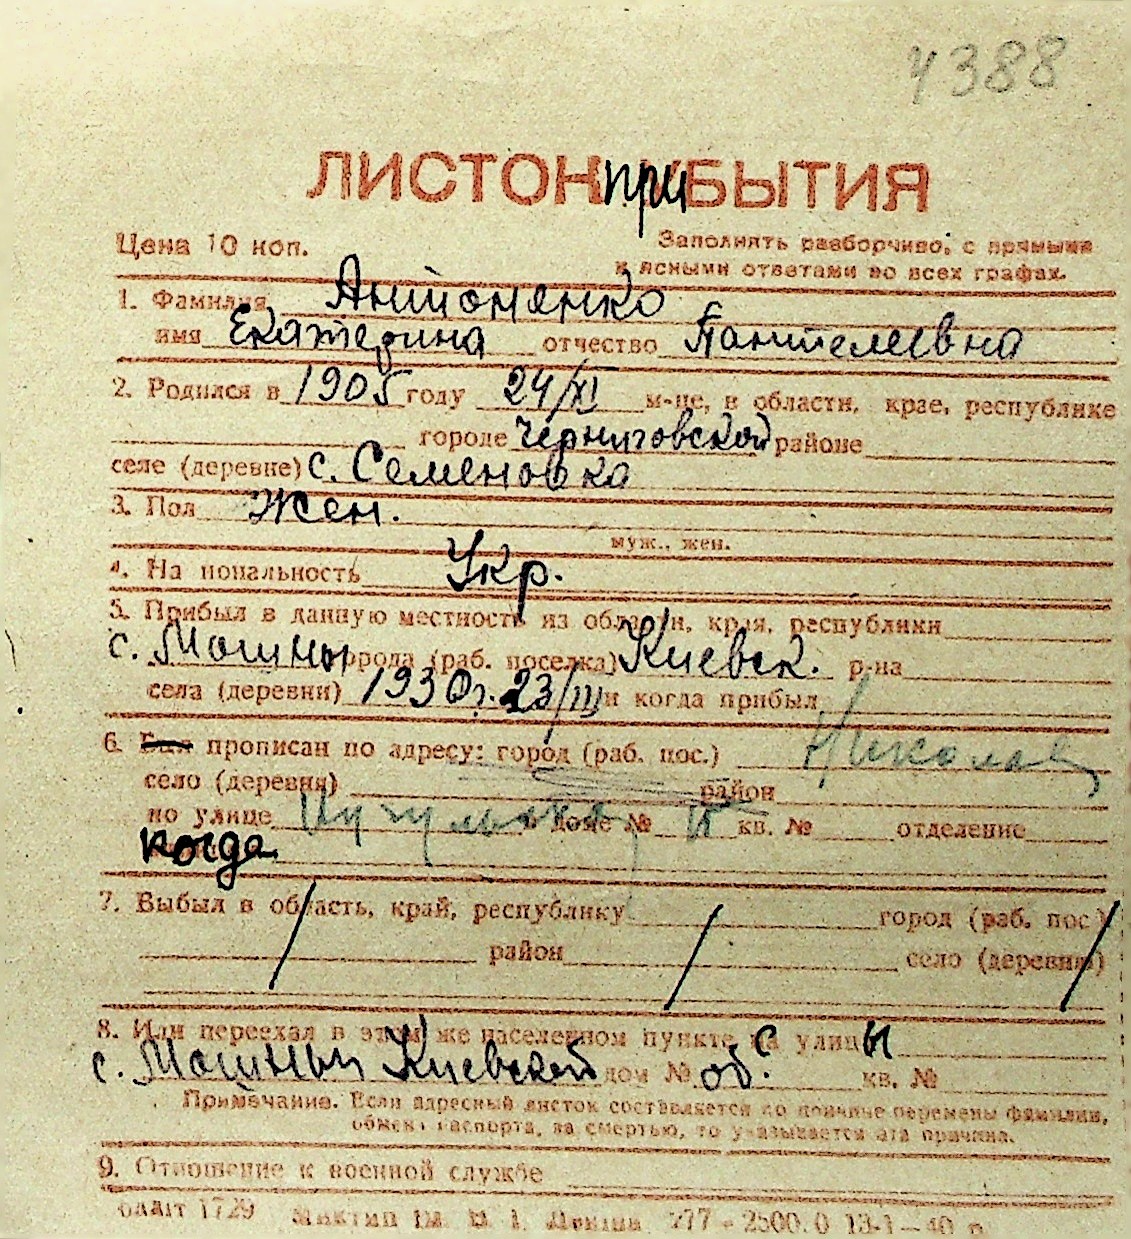 4388
ЛИСТОК ПРИБЫТИЯ
Цена 10 коп. Заполнять разборчиво, с прямыми
и ясными ответами во всех графах.
1. Фамилия Антоненко
имя Екатерина отчество Пантелеевна
2. Родился в 1905 году 24/XI м-це, в области, крае, республике
городе Черниговской районе
селе (деревне) с. Семеновка
3. Пол Жен.
муж., жен.
4. На иональность Укр.
5. Прибыл в данную местность из области, края, республики
с. Мошны города (раб. поселка) Киевск. р-на
села (деревни) 1930 г. 23/III и когда прибыл
6. Был прописан по адресу: город (раб. пос.) Николаев
село (деревня) район
по улице в доме № кв. № отделение
когда
7. Выбыл в область, край, республику город (раб. пос.)
район село (деревня)
8. Или переехал в этом же населенном пункте с улицы
с. Мошны Киевской дом № об. кв. №
Примечание. Если адресный листок составляется по причине перемены фамилии,
обмена паспорта, за смертью, то указывается эта причина.
9. Отношение к военной службе
1729 277 - 2500.0 13-1-40 р.